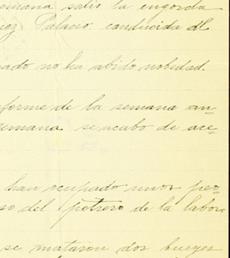 semana salió la engorda
Palacio conducida al
ado no ha abido nobedad.
forme de la semana an-
semana se acabo de ace-
han ocupado unos per-
so del potrero de la labor
se mataron dos bueyes